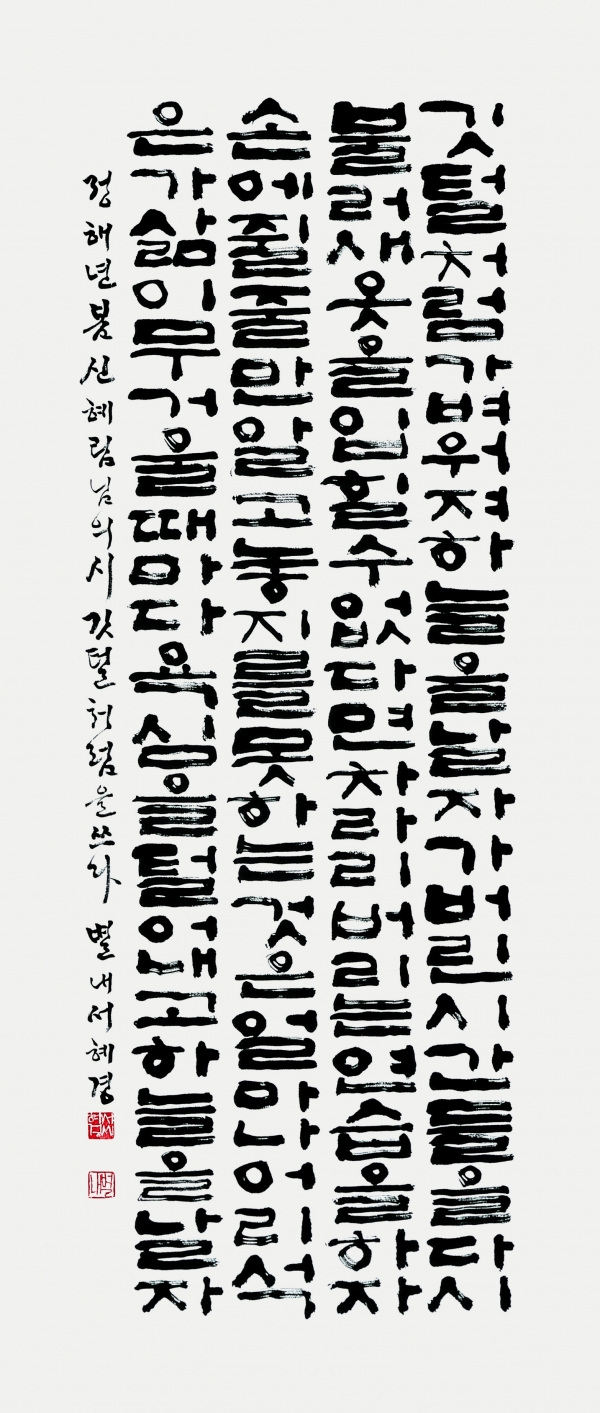 깃털처럼가벼워져하늘을날자가버린시간들을다시
불러새옷을입힐수없다면차라리버리는연습을하자
손에쥘줄만알고놓지를못하는것은얼마나어리석
은가삶이무거울때마다욕심을털어내고하늘을날자
정해년봄신혜림님의시깃털처럼을쓰다 별내서혜경